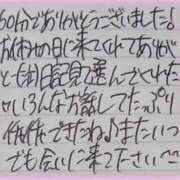 60分でありがとうございました!
かいわせの日に来てくれてありが
と 日記見て選んでくれた
いろんなお話してたっぷり
できたね♪またいつ
でも会いに来てださい